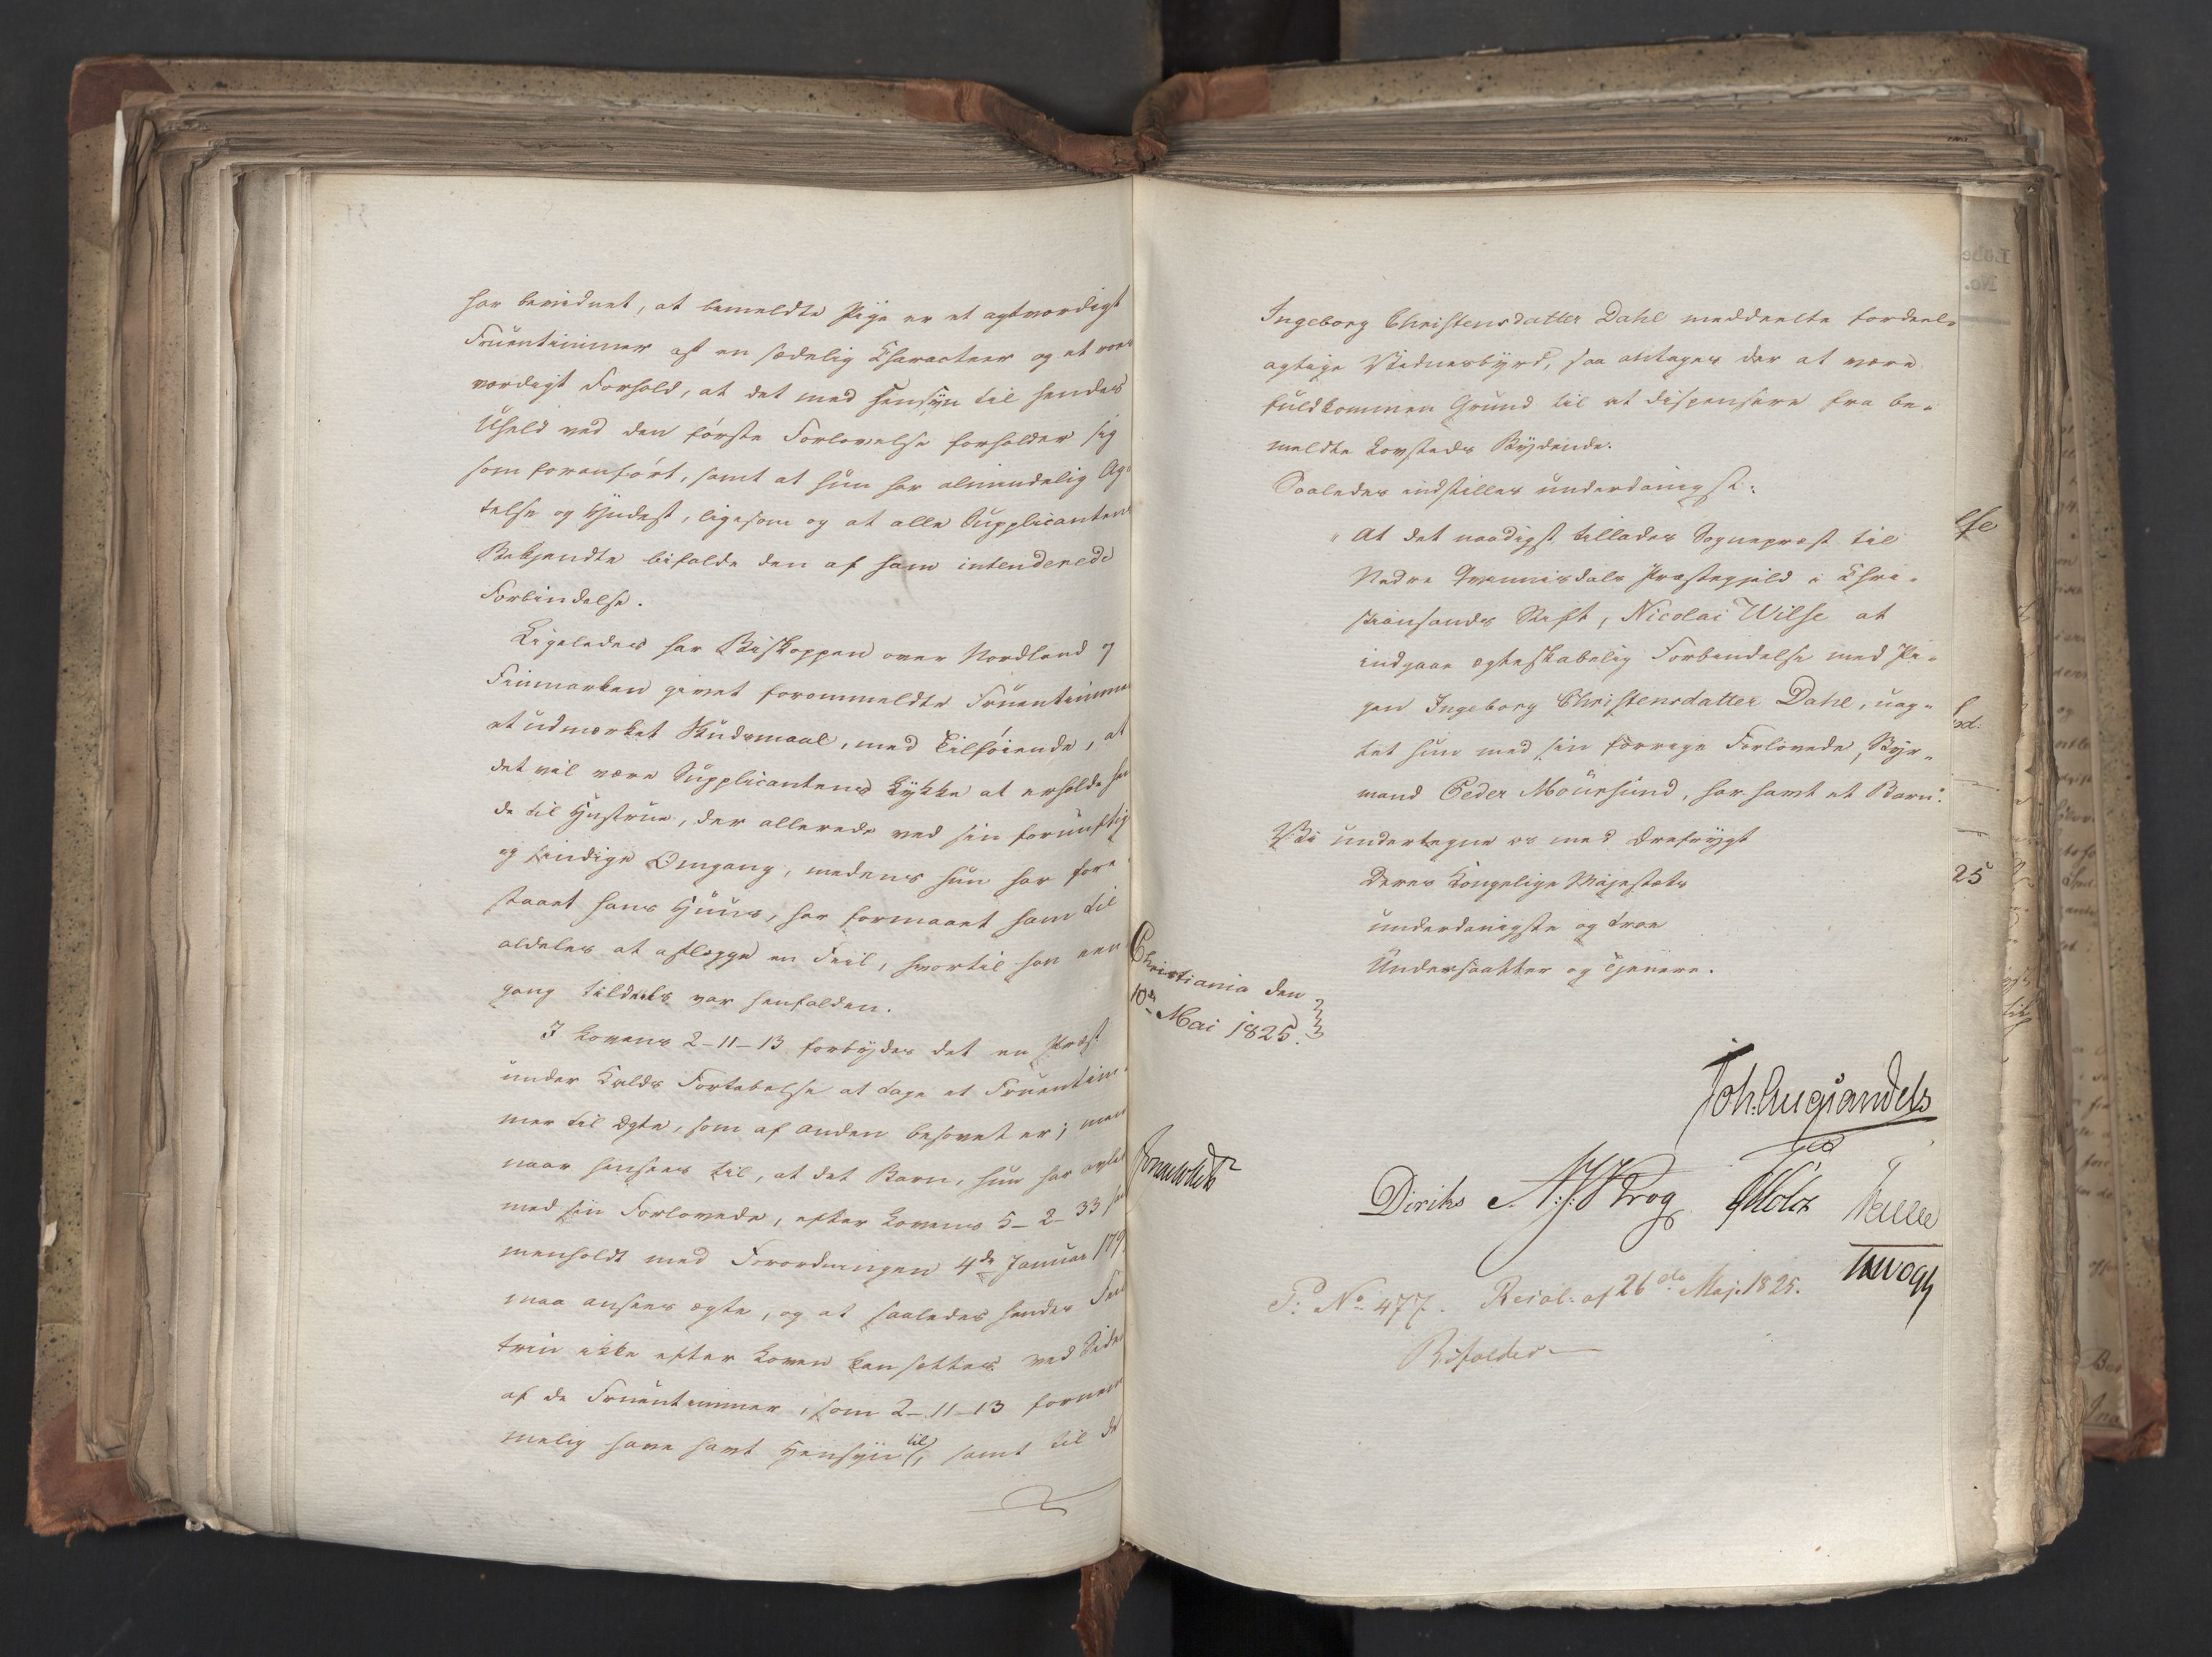 har bevidnet, at bemeldte Pige er et agtværdigt
Fruentimmer af en sædelig Characteer og et roes
værdigt Forhold, at det med Hensyn til hendes
Uheld ved den første Forlovelse forholder sig
som foranført, samt at hun har almindelig Ag-
telse og Yndest, ligesom og at alle Supplicantens
Bekjendte bifalde den af ham intenderede
Forbindelse.
Ligeledes har Biskoppen over Nordland og
Finmarken givet forommeldte Fruentimmer
et udmærket Skudsmaal, med Tilføiende, at
det vil være Supplicantens Lykke at erholde hen
de til Hustrue, der allerede ved sin fornuftig
og sindige Omgang, medens hun har fore
staaet hans Huus, har formaaet ham til
aldeles at aflægge en Feil, hvortil han een
gang tildeels var henfalden.
I Lovens 2-11-13 forbydes det en Præst
under Kalds Fortabelse at tage et Fruentim-
mer til Ægte, som af anden besovet er; men
naar henses til, at det Barn, hun har avlet
med sin Forlovede, efter Lovens 5-2-33 sam
menholdt med Forordningen 4de Januar 179
maa ansees ægte, og at saaledes hendes Feil
trin ikke efter Loven kan sættes ved Siden
af de Fruentimmer, som 2-11-13 fornem
melig have havt Hensyn til, samt til de
Ingeborg Christensdatter Dahl meddeelte fordeel-
agtige Vidnesbyrd, saa antages der at være
fuldkommen Grund til at dispensere fra be-
meldte Lovsteds Bydende.
Saaledes indstilles underdanigst:
"At det naadigst tillades Sognepræst til
Nedre Qvinnisdals Præstegjeld i Chri-
stiansands Stift, Nicolai Wilse at
indgaae ægteskabelig Forbindelse med Pi-
gen Ingeborg Christensdatter Dahl, uag-
tet hun med sin forrige Forlovede, Styr-
mand Peder Moursund, har havt et Barn".
Vi undertegne os med Ærefrygt
Deres Kongelige Majestæts
underdanigste og troe
Undersaatter og Tjenere.
Christiania den
10de Mai 1825.
Joh. Aug Sandels
Diriks A. J. Krog JHolst
TWVogt
P: No 477. Resol: af 26de Maj 1825.
Bifaldes
25